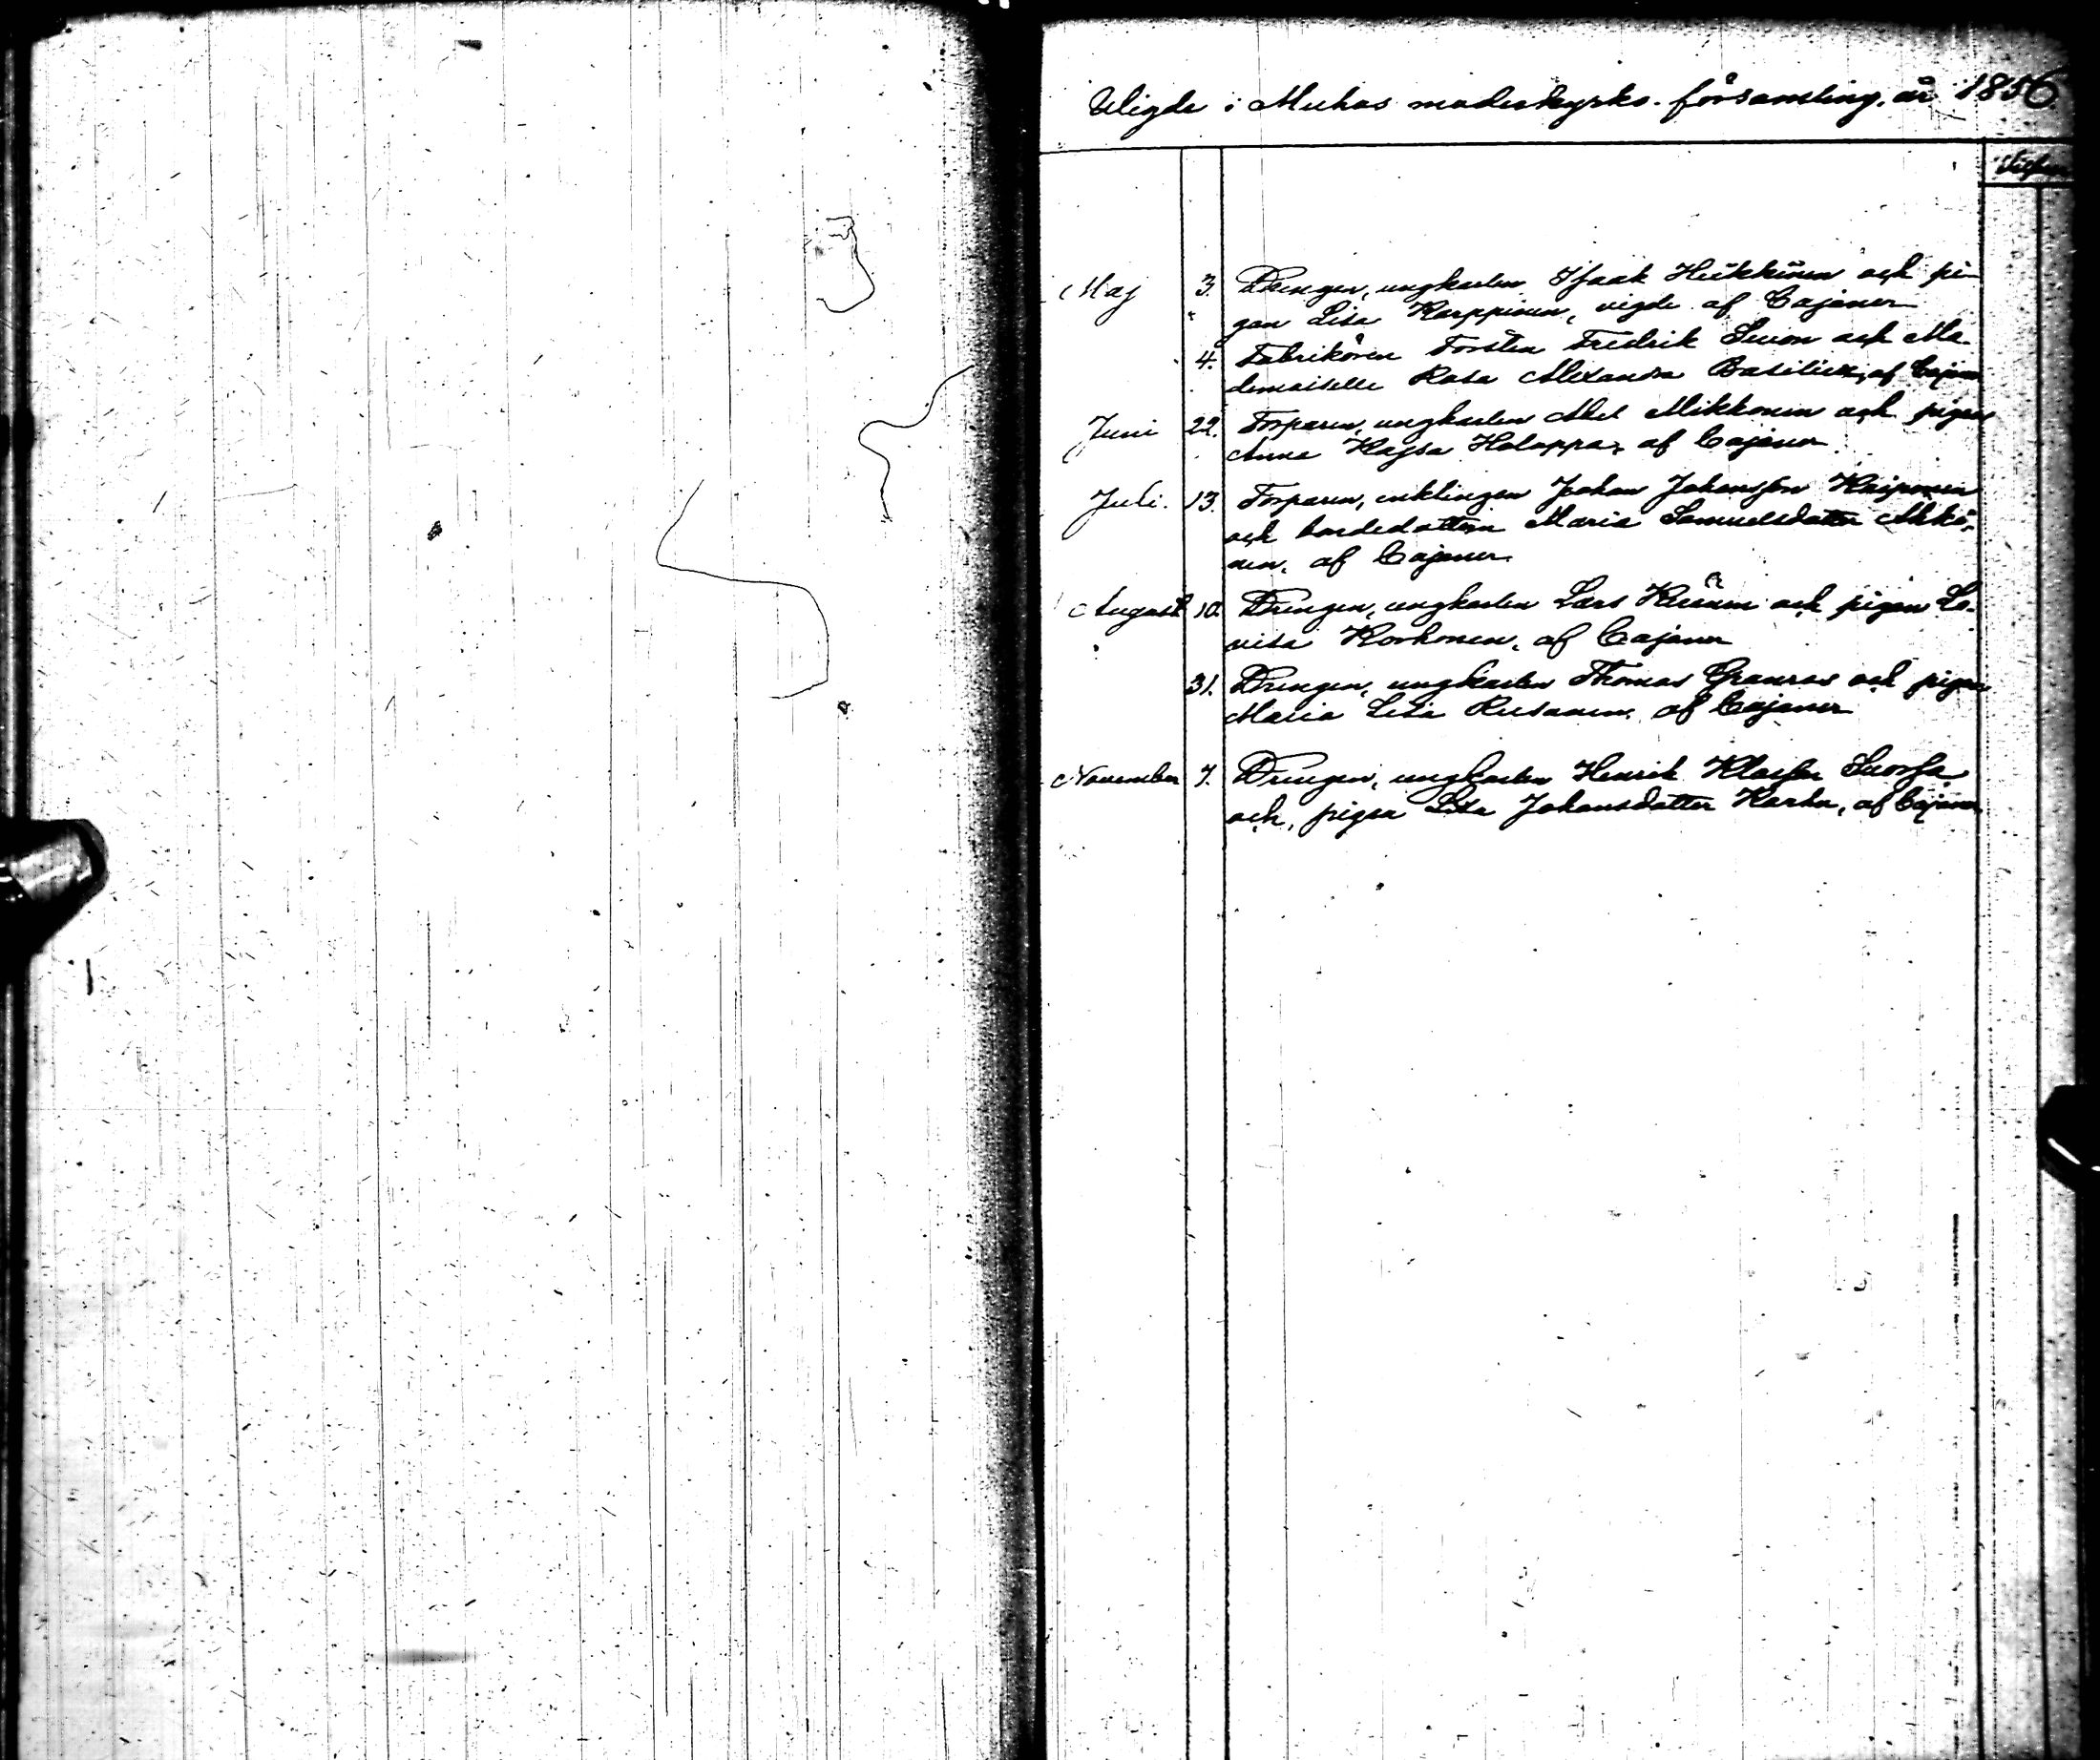 Vigde i Muhos moderkyrko-församling, år 1856
Maj 3. Drengen, ungkarlen Isaak Heikkinen och pi-
gan Lisa Karppinen, vigde af Cajaner
4. Fabrikören Torsten Fredrik Simon och Ma-
demoiselle Rosa Alexandra Basilier, af Cajaner
Juni 22. Torparen, ungkarlen Abel Mikkonen och pigan
Anna Kajsa Holappa, af Cajaner
Juli. 13. Torparen, enklingen Johan Johansson Kaiponen
och bondedottren Maria Samuelsdotter Mkö-
nen, af Cajaner.
August 10. Drengen, ungkarlen Lars och pigan Lo-
visa Korhonen, af Cajaner
31. Drengen, ungkarlen Thomas Granroos och pigan
Maria Lisa Rusanen, af Cajaner
November 7. Drengen, ungkarlen Henrik Suorsa
och pigan Lisa Johansdotter Karhu, af Cajaner